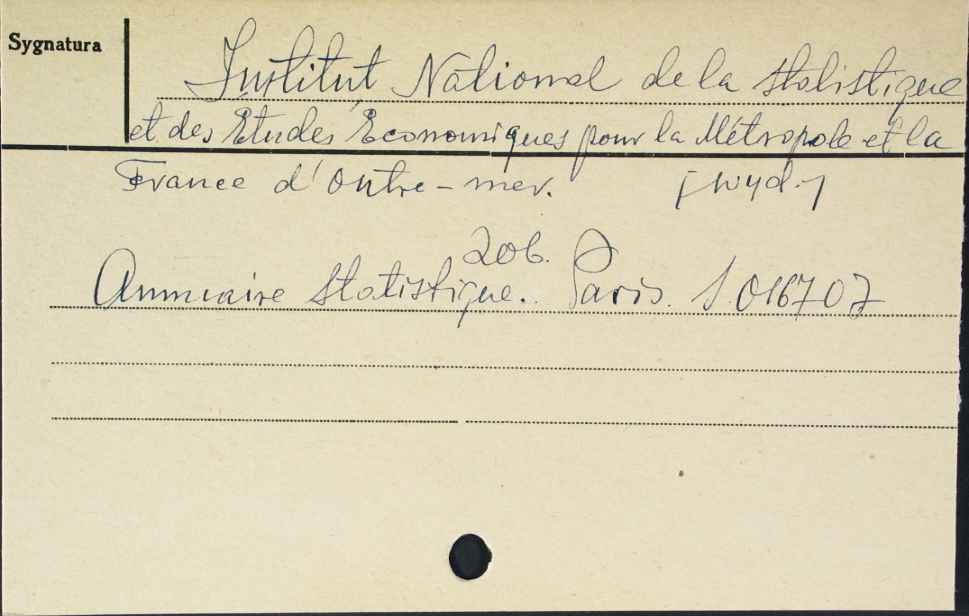 Sygnatura
Institut National de la Statistique
et des Etudes Économiques pour la Métropole et la
France d'Outre-mer. [wyd.]
Annuaire Statistique. Zob. Paris. S 016707